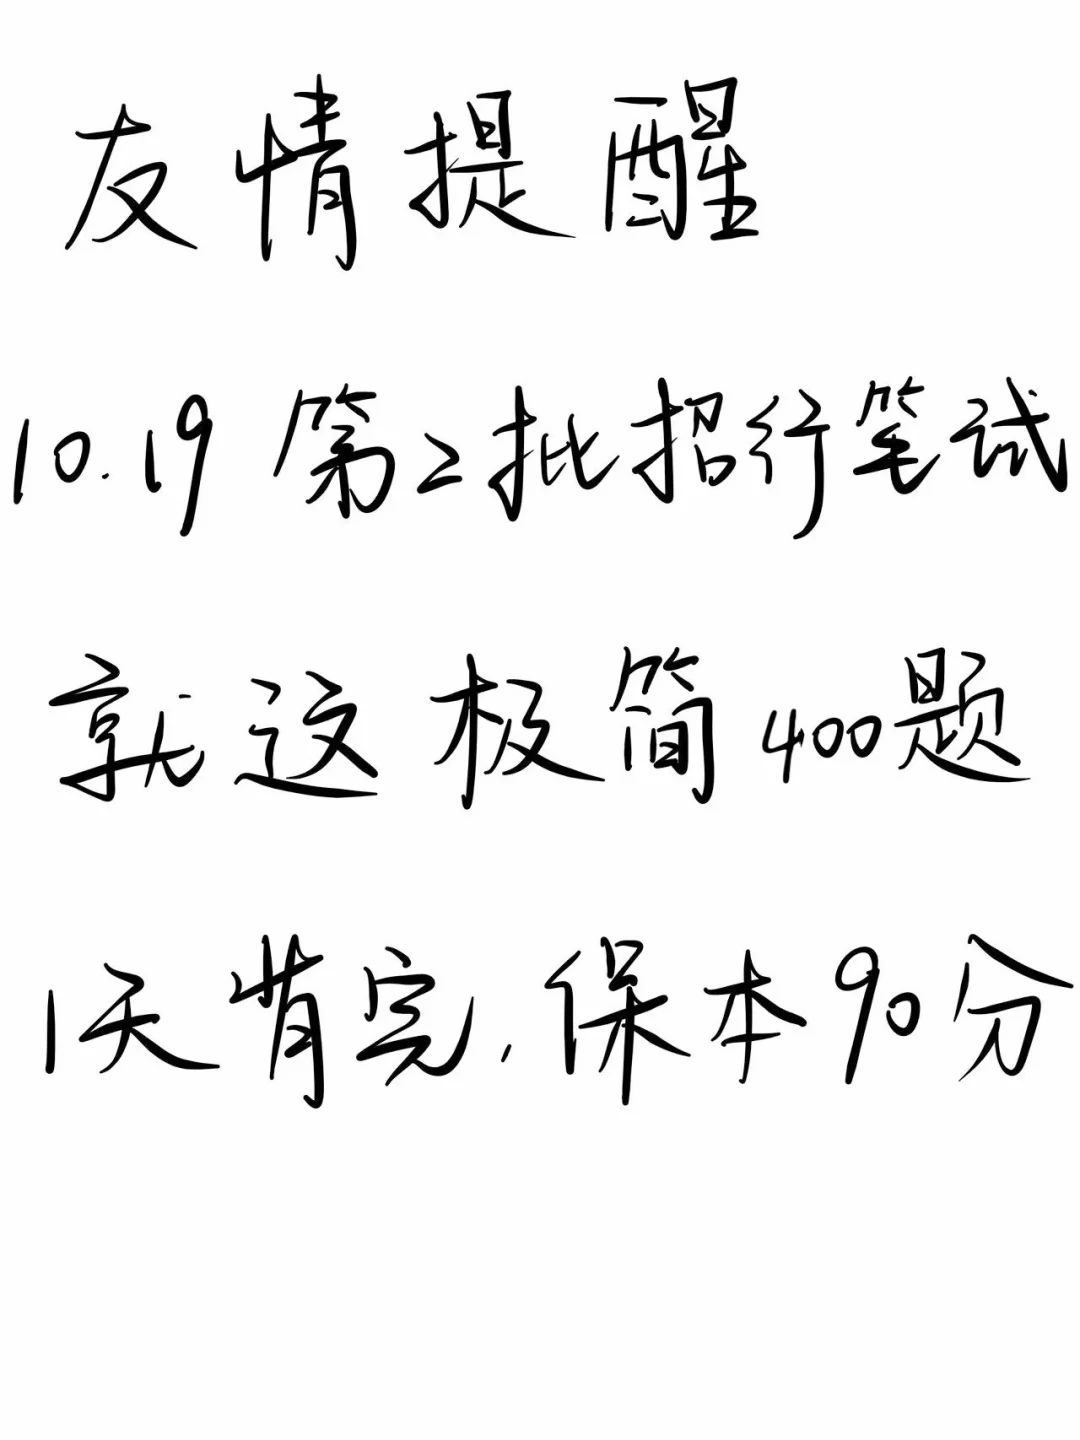 友情提醒
10.19 第2批招行笔试
就这极简400题
1天背完,保本90分